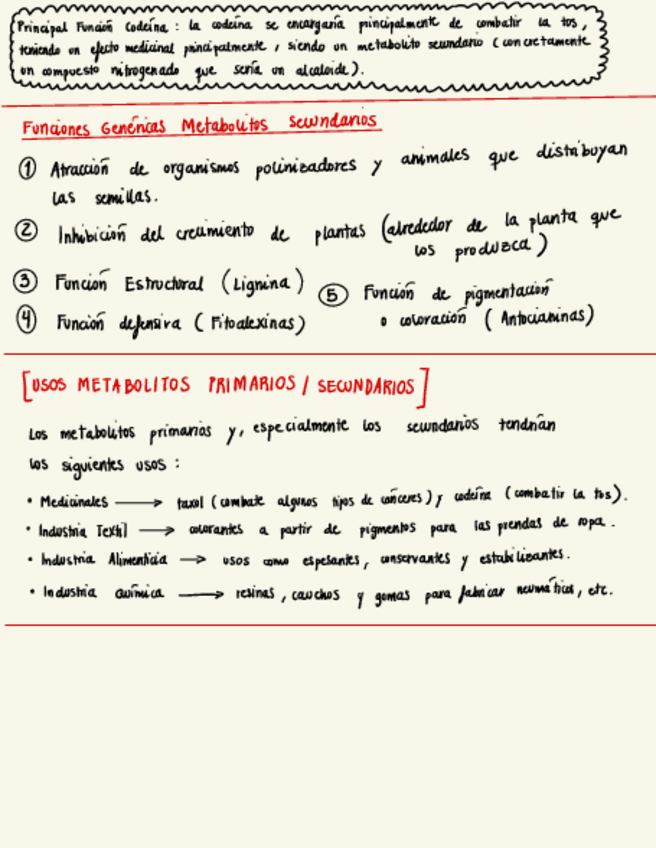 Principal Función Codeína : la codeína se encargaría principalmente de combatir la tos,
teniendo un efecto medicinal principalmente, siendo un metabolito secundario (concretamente
un compuesto nitrogenado que sería un alcaloide).
Funciones Genéricas Metabolitos secundarios
① Atracción de organismos polinizadores y animales que distribuyan
las semillas.
② Inhibición del crecimiento de plantas (alrededor de la planta que
los produzca)
③ Función Estructural (Lignina)
④ Función defensiva (Fitoalexinas)
⑤ Función de pigmentación
o coloración (Antocianinas)
[USOS METABOLITOS PRIMARIOS / SECUNDARIOS]
Los metabolitos primarios y, especialmente los secundarios tendrían
los siguientes usos :
• Medicinales → taxol (combate algunos tipos de cánceres) y codeína (combatir la tos).
• Industria Textil → colorantes a partir de pigmentos para las prendas de ropa.
• Industria Alimenticia → usos como espesantes, conservantes y estabilizantes.
• Industria Química → resinas, cauchos y gomas para fabricar neumáticos, etc.